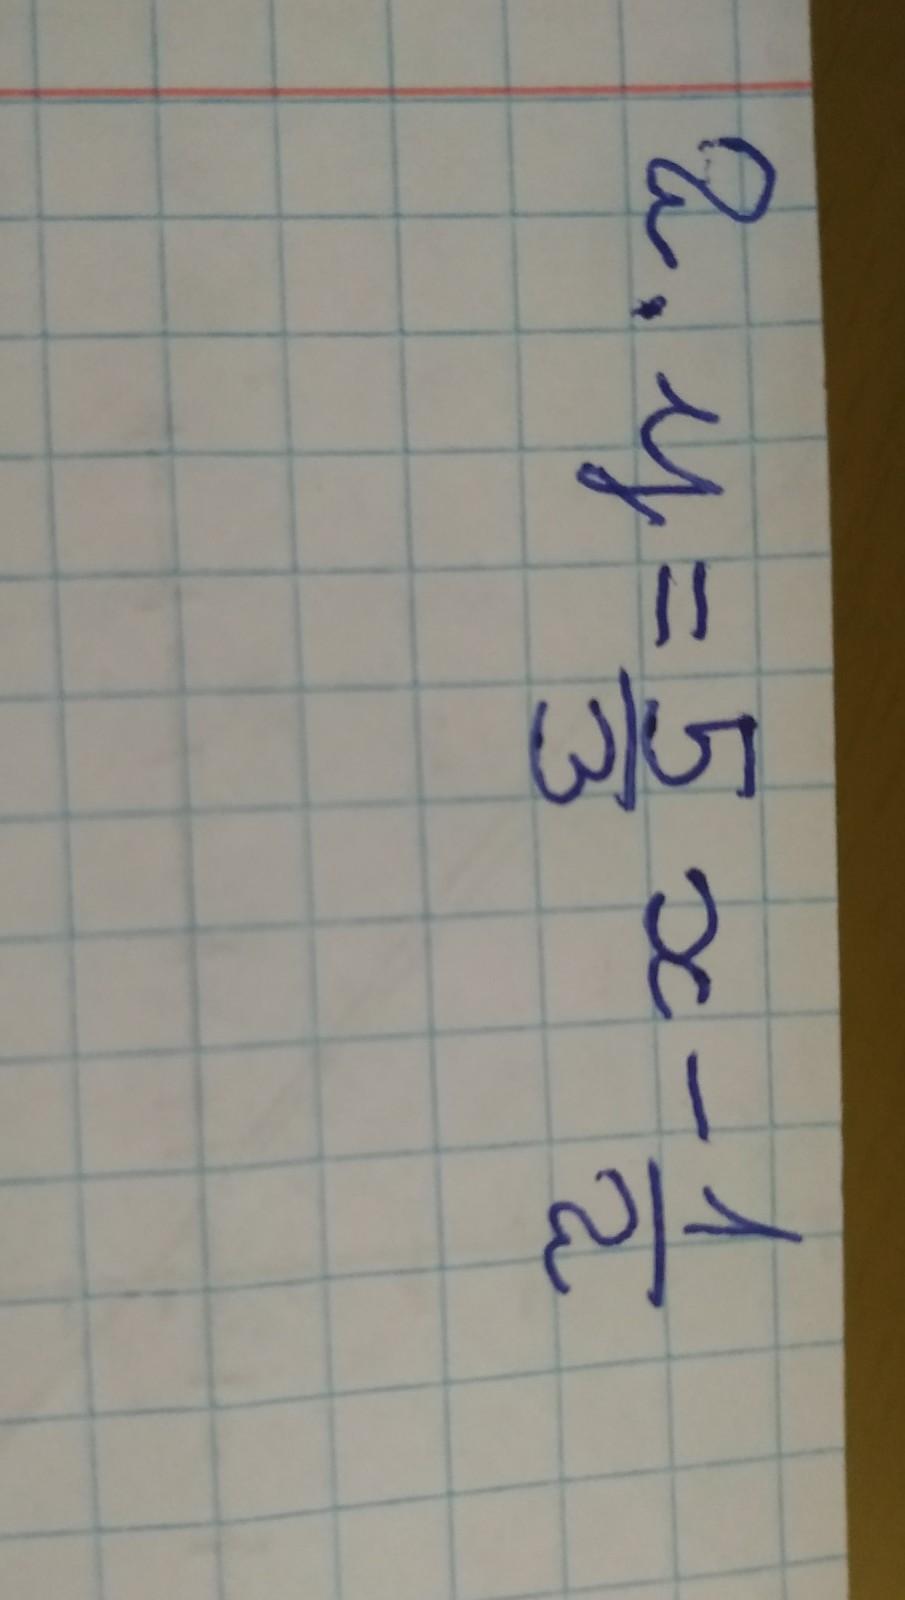 2. y = 5/3 x - 1/2